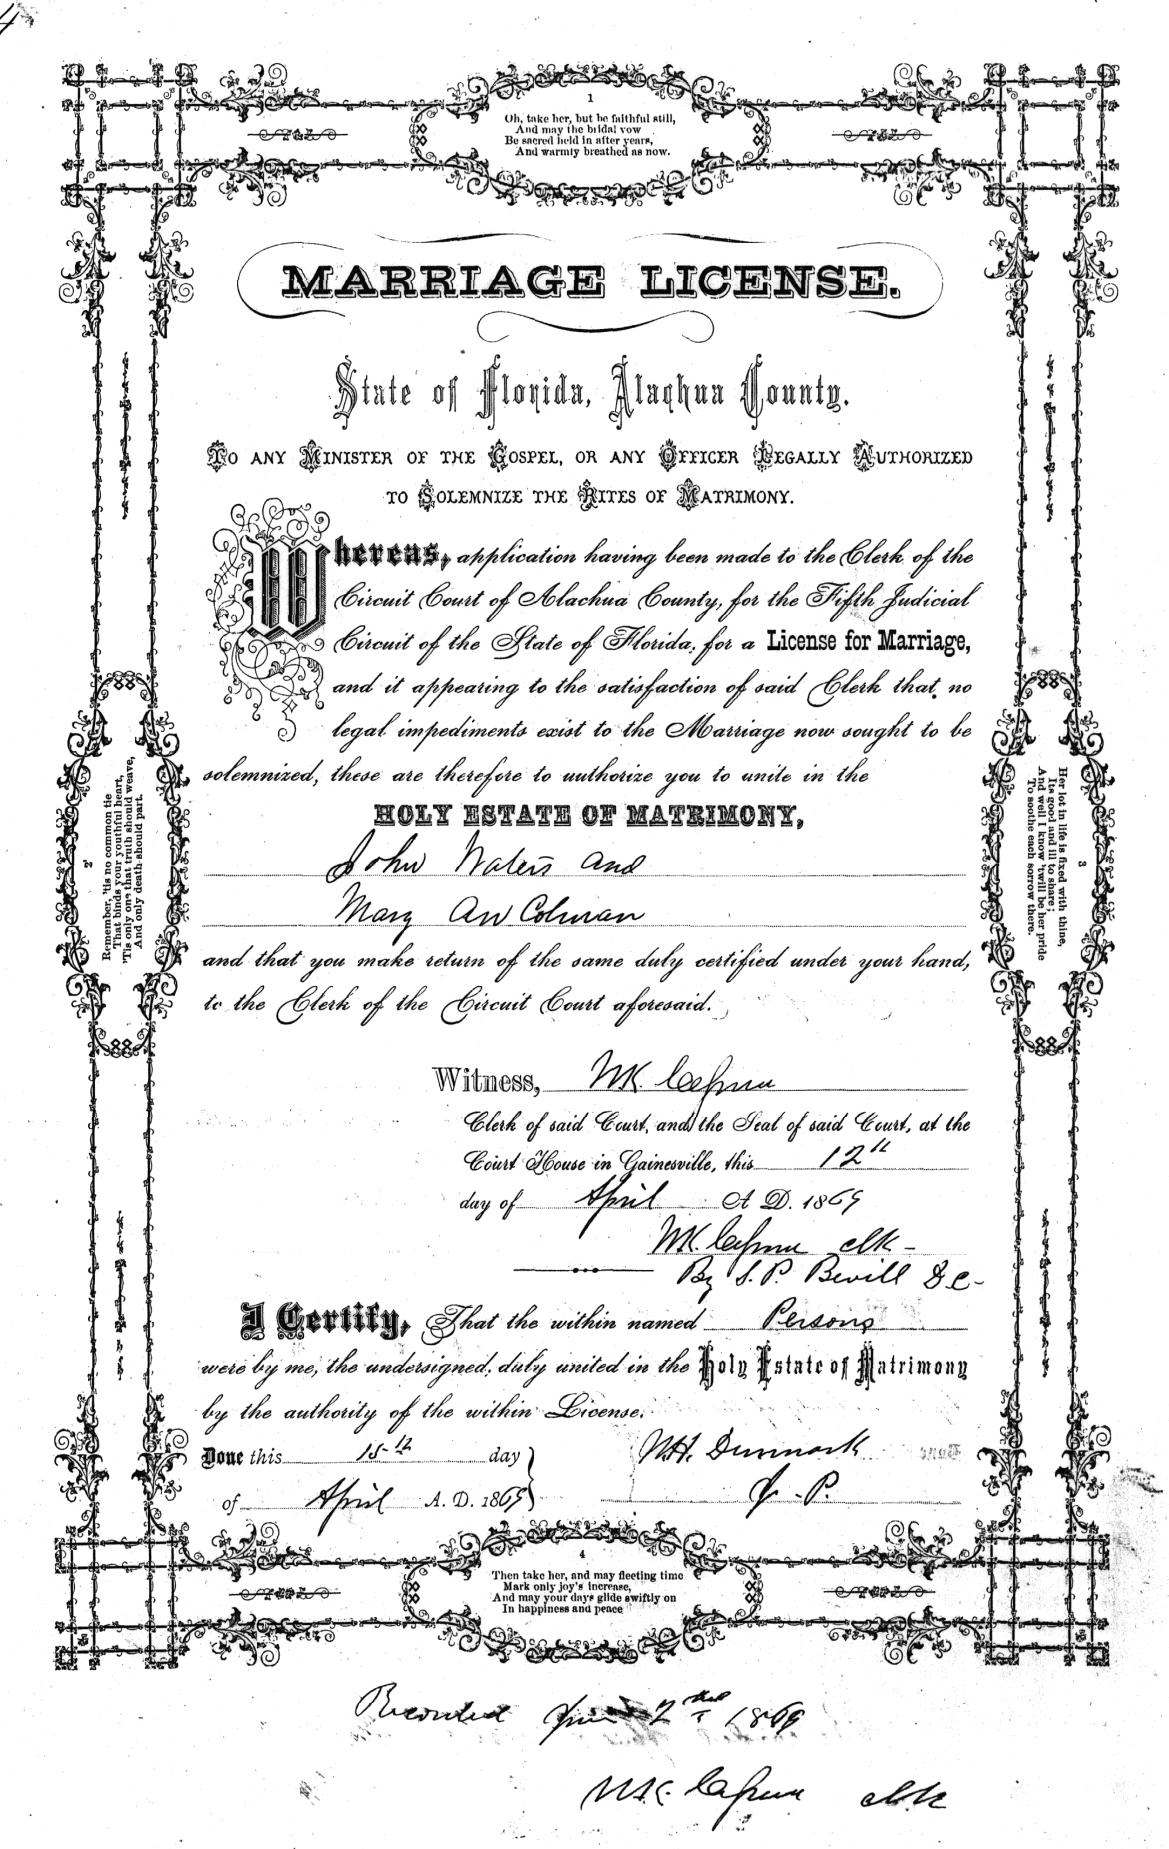 4
1
Oh, take her, but be faithful still,
And may the bridal vow
Be sacred held in after years,
And warmly breathed as now.
MARRIAGE LICENSE.
State of Florida, Alachua County.
TO ANY MINISTER OF THE GOSPEL, OR ANY OFFICER LEGALLY AUTHORIZED
TO SOLEMNIZE THE RITES OF MATRIMONY.
Whereas, application having been made to the Clerk of the
Circuit Court of Alachua County, for the Fifth Judicial
Circuit of the State of Florida, for a License for Marriage,
and it appearing to the satisfaction of said Clerk that no
legal impediments exist to the Marriage now sought to be
solemnized, these are therefore to authorize you to unite in the
HOLY ESTATE OF MATRIMONY,
John Waters and
Mary An Colman
and that you make return of the same duly certified under your hand,
to the Clerk of the Circuit Court aforesaid.
2
Remember, 'tis no common tie
That binds your youthful heart,
'Tis only one that truth should weave,
And only death should part.
3
Her lot in life is fixed with thine,
Its good and ill to share;
And well I know 'twill be her pride
To soothe each sorrow there.
Witness, WK Cessna
Clerk of said Court, and the Seal of said Court, at the
Court House in Gainesville, this 12th
day of April A D. 1869
WK. Cessna clk
By S. P. Bevill D C
I Certify, That the within named Persons
were by me, the undersigned, duly united in the Holy Estate of Matrimony
by the authority of the within License.
Done this 15th day W.H. Dunmark
of April A. D. 1869 J. P.
4
Then take her, and may fleeting time
Mark only joy's increase,
And may your days glide swiftly on
In happiness and peace
Recorded 2 1869
WK. Cessna clk